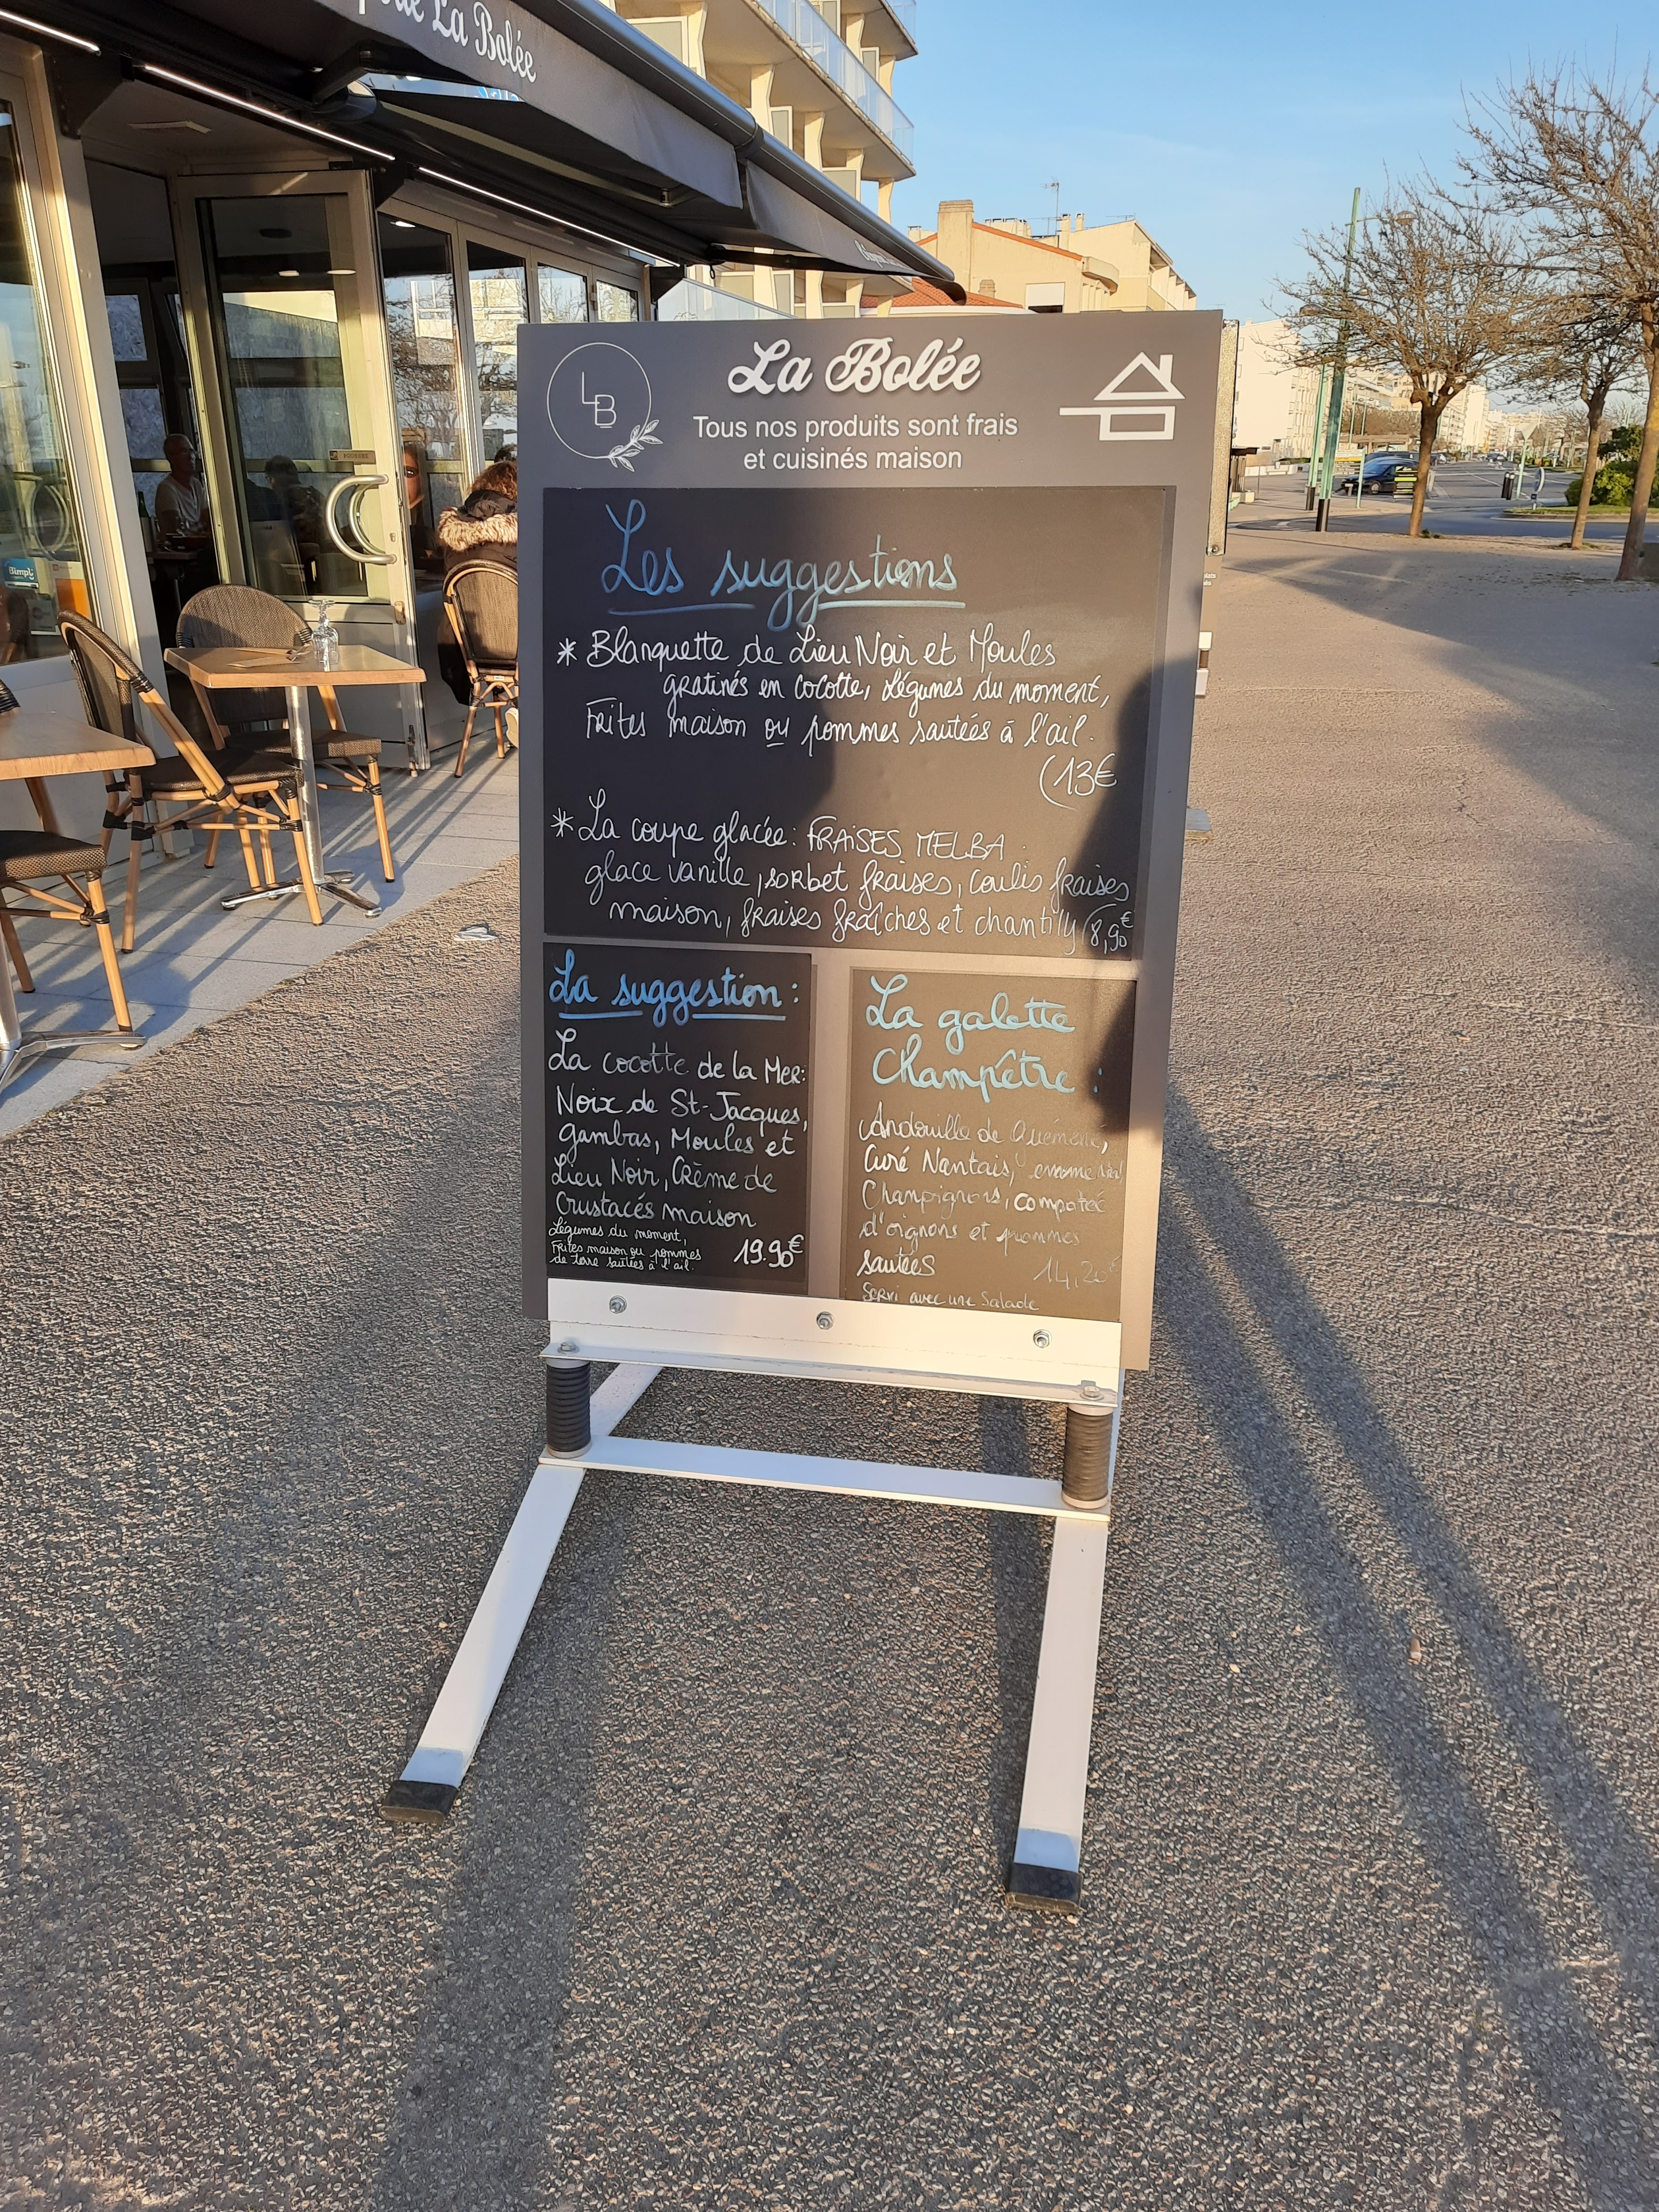 La Bolée
LB
La Bolée
Tous nos produits sont frais
et cuisinés maison
Les suggestions
* Blanquette de Lieu Noir et Moules
gratinés en cocotte, légumes du moment,
Frites maison ou pommes sautées à l'ail.
(13€
* La coupe glacée : FRAISES MELBA
glace vanille, sorbet fraises, coulis fraises
maison, fraises fraîches et chantilly (8,90€
La suggestion :
La cocotte de la Mer :
Noix de St-Jacques,
gambas, Moules et
Lieu Noir, Crème de
Crustacés maison
Légumes du moment,
Frites maison ou pommes
de terre sautées à l'ail.
19.90€
La galette
Champêtre :
Andouille de Guémené,
Curé Nantais,
Champignons, compotée
d'oignons et pommes
sautées
14,20€
Servi avec une Salade
Bimpli